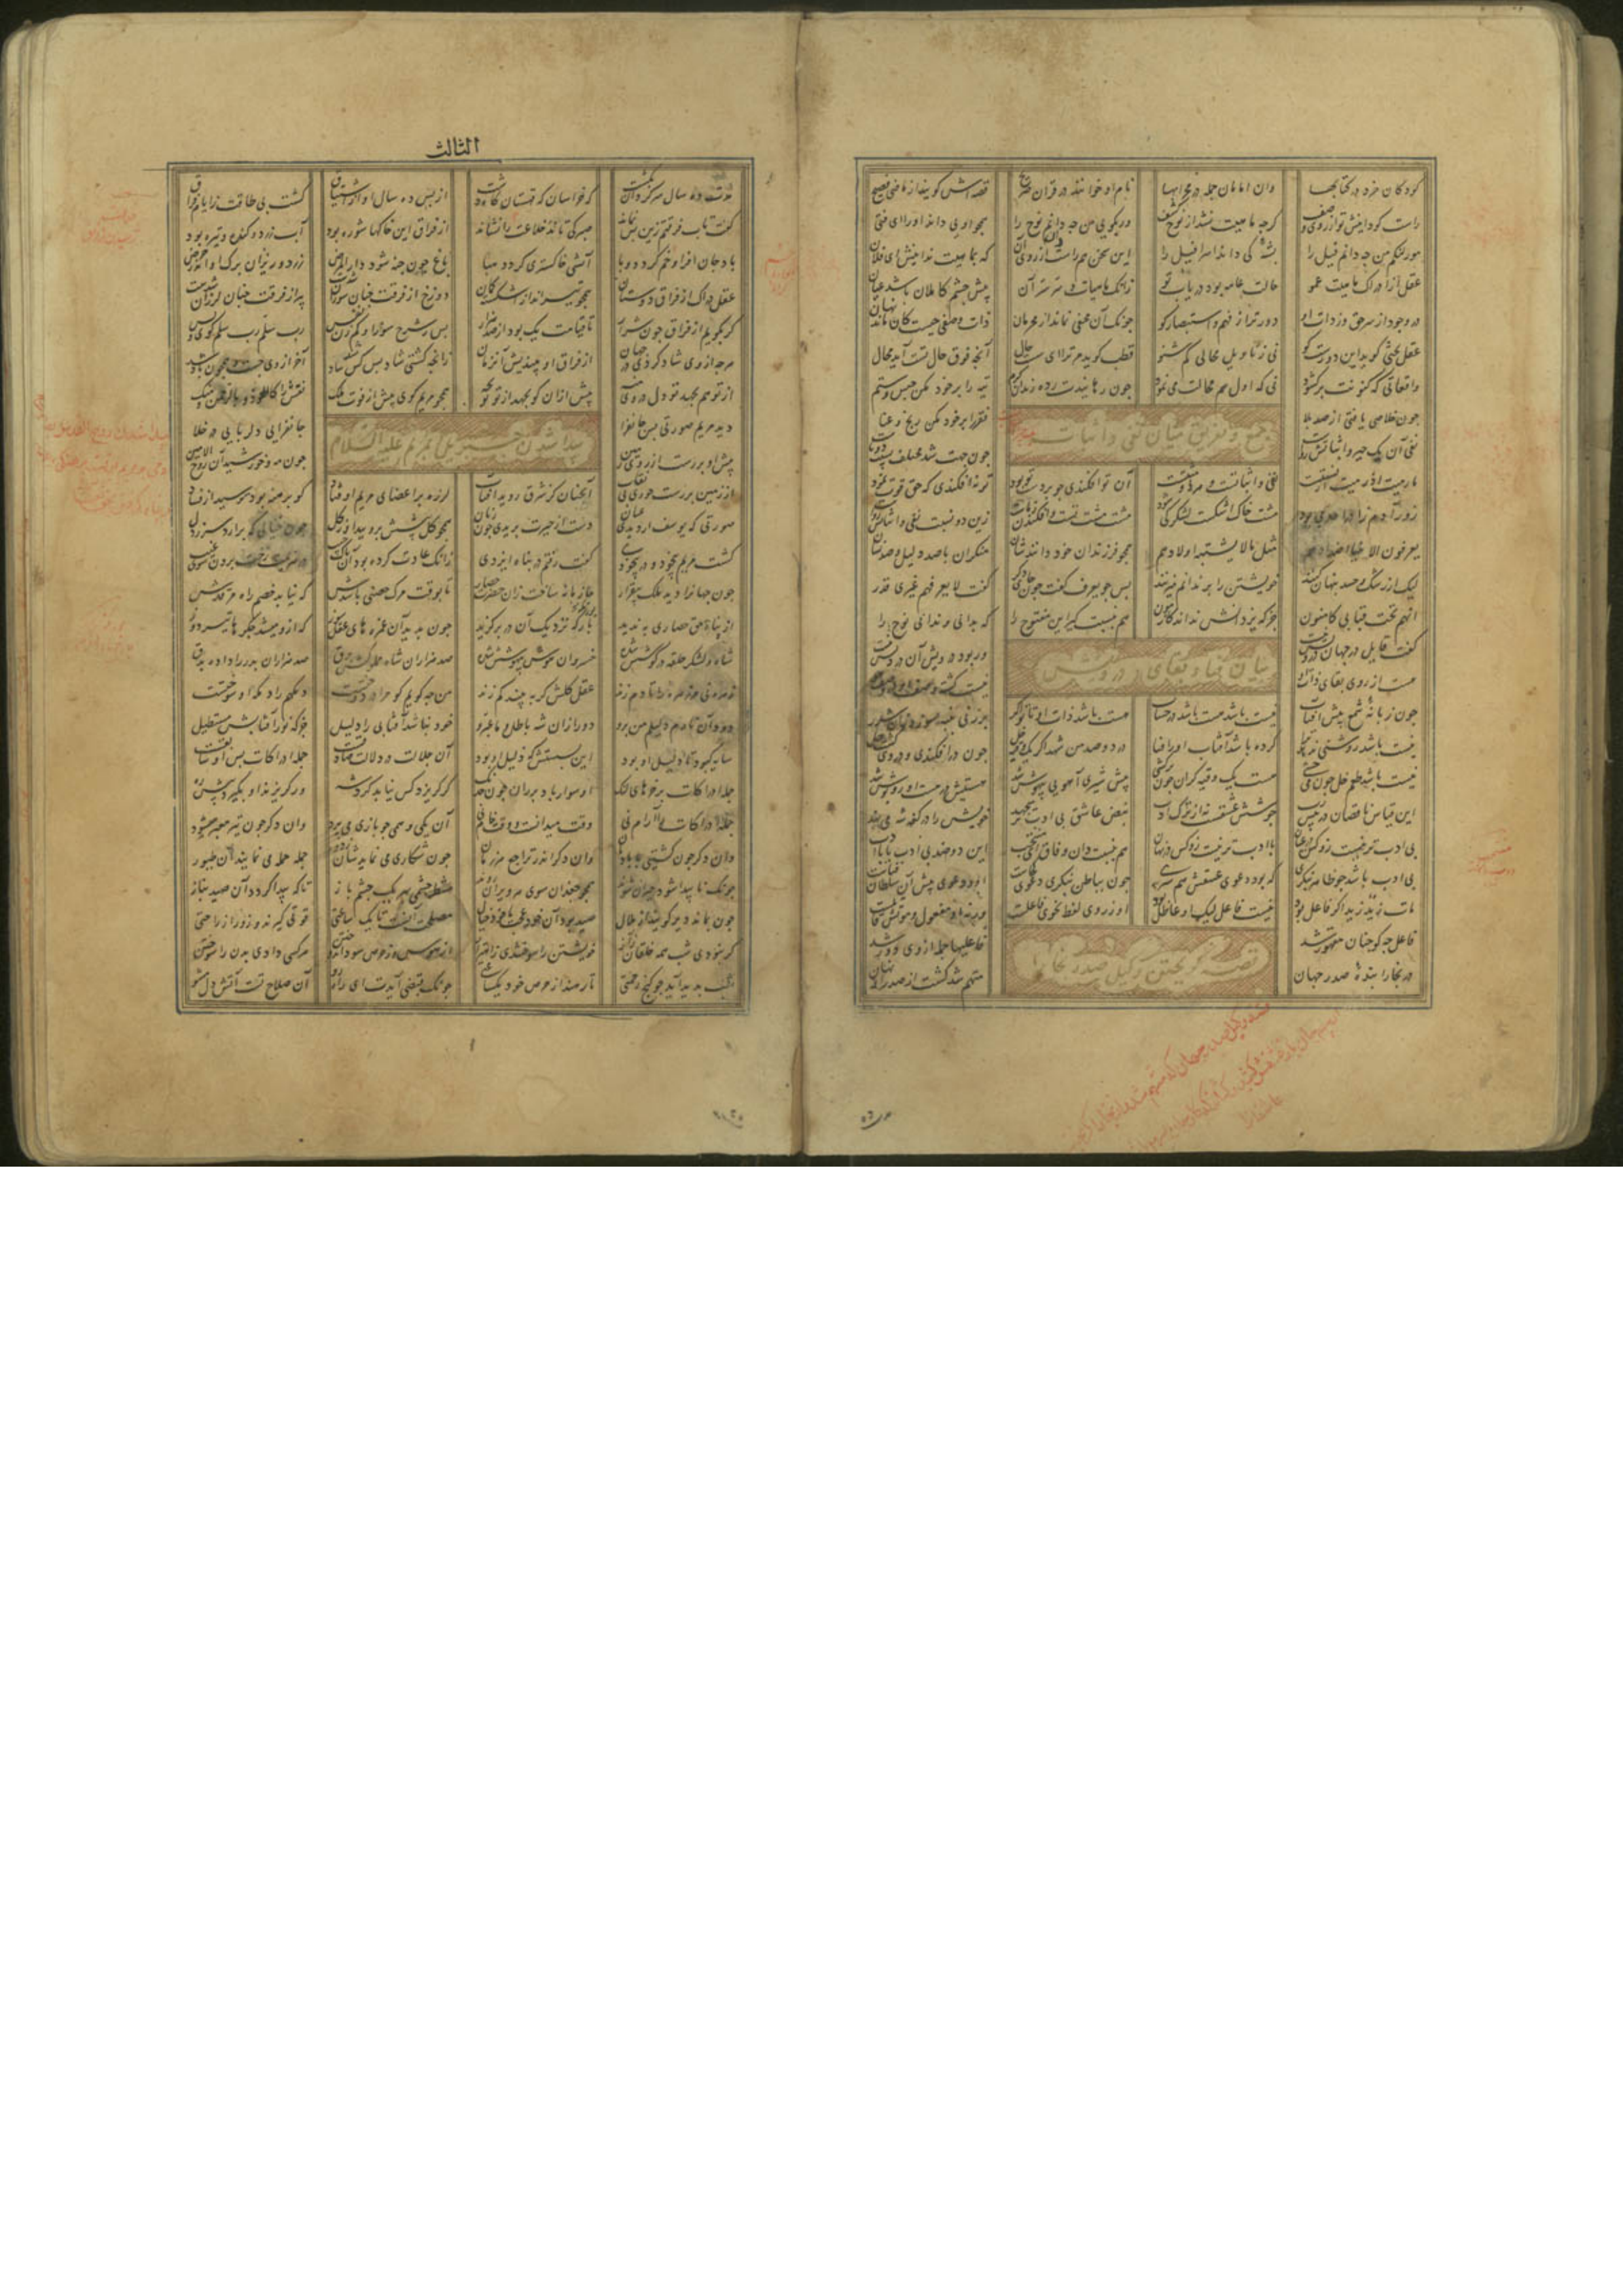 کودکان خرد در کتابها وان امامان جمله در محرابها نام او خوانند در قرآن صریح قصه اش گویند از ماضی فصیح
راست گو دانیش تو از روی وصف گرچه ماهیت نشد از نوح کشف ور بگویی من چه دانم نوح را همچو اویی داند او را ای فتی
مور لنگم من چه دانم فیل را پشه کی داند اسرافیل را این سخن هم راست از روی آن که بماهیت ندانیش ای فلان
عقل از ادراک ماهیت عمو حالت عامه بود دریاب تو زانک ماهیات و سر سر آن پیش چشم کاملان باشد عیان
در وجود از سر حق و ذات او دورتر از فهم و استبصار کو چونک آن مخفی نماند از محرمان ذات و وصفی چیست کان ماند نهان
عقل بحثی گوید این دورست گو نی ز تاویل محالی کم شنو قطب گوید مر ترا ای سست حال آنچه فوق حال تست آید محال
واقعاتی که کنونت برگشود نی که اول هم محالت می نمود چون رهانیدت ز ده زندان کرم تیه را بر خود مکن حبس ستم
چون خلاصی یافتی از صد بلا فقر را بر خود مکن رنج و عنا
جمع و تفریق میان نفی و اثبات
نفی آن یک چیز و اثباتش رواست چون جهت شد مختلف نسبت دوتاست
ما رمیت اذ رمیت از نسبتست نفی و اثباتست و هر دو مثبتست آن تو افکندی چو بر دست تو بود تو نه افکندی که حق قوت نمود
زور آدم زاد را حدی بود مشت خاک اشکست لشکر کی شود مشت مشت تست و افکندن ز ماست زین دو نسبت نفی و اثباتش رواست
یعرفون الانبیا اضدادهم مثل ما لا یشتبه اولادهم همچو فرزندان خود دانندشان منکران با صد دلیل و صد نشان
لیک از رشک و حسد پنهان کنند خویشتن را بر ندانم میزنند پس چو یعرف گفت چون جای دگر گفت لا یعرفهم غیری فذر
انهم تحت قبابی کامنون جز که یزدانش نداند ز آزمون هم بنسبت گیر این مفتوح را که بدانی و ندانی نوح را
گفت قایل در جهان درویش نیست ور بود درویش آن درویش نیست
بیان فنا و بقای درویش
هست از روی بقای ذات او نیست گشته وصف او در وصف هو
چون زبانه شمع پیش آفتاب نیست باشد هست باشد در حساب هست باشد ذات او تا تو اگر بر نهی پنبه بسوزد زان شرر
نیست باشد روشنی ندهد ترا کرده باشد آفتاب او را فنا در دو صد من شهد اگر یک وقیه خل چون در افکندی و در وی گشت حل
نیست باشد طعم خل چون می چشی هست یک وقیه گران چون برکشی پیش شیری آهویی بیهوش شد هستیش در هست او روپوش شد
این قیاس ناقصان در کار رب جوشش عشقست نه از ترک ادب نبض عاشق بی ادب برمیجهد خویش را در کفه شه می نهد
بی ادب تر نیست زو کس در جهان با ادب تر نیست زو کس در نهان هم بنسبت دان وفاق ای منتجب این دو ضد بی ادب با با ادب
بی ادب باشد چو ظاهر بنگری که بود دعوی عشقش هم سری چون بباطن بنگری دعوی کجاست او و دعوی پیش آن سلطان فناست
مات زید زید اگر فاعل بود نیست فاعل لیک او عاطل بود او ز روی لفظ نحوی فاعلست ورنه او مفعول و موتش قاتلست
فاعل چه کو چنان مقهور شد فاعلیها جمله از وی دور شد
قصه گریختن وکیل صدر بخارا
در بخارا بنده صدر جهان متهم شد گشت از صدرش نهان
الثالث
مدت ده سال سرگردان بگشت گه خراسان گه قهستان گاه دشت از پس ده سال او از اشتیاق گشت بی طاقت ز ایام فراق
گفت تاب فرقتم زین پس نماند صبر کی تاند خلاعت را نشاند از فراق این خاکها شوره بود آب زرد و گنده و تیره بود
باد جان افزا وخم گردد وبا آتشی خاکستری گردد هبا باغ چون جنه شود دار المرض زرد و ریزان برگ او اندر حرض
عقل دراک از فراق دوستان همچو تیرانداز اشکسته کمان دوزخ از فرقت چنان سوزان شدست پیر از فرقت چنان لرزان شدست
گر بگویم از فراق چون شرار تا قیامت یک بود از صد هزار پس ز شرح سوز او کم زن نفس رب سلم رب سلم گوی و بس
هرچه از وی شاد گردی در جهان از فراق او بیندیش آن زمان زانچه گشتی شاد بس کس شاد شد آخر از وی جست و همچون باد شد
از تو هم بجهد تو دل بر وی منه پیش ازان کو بجهد از تو تو بجه همچو مریم گوی پیش از فوت ملک نقش را کالعوذ بالرحمن منک
پیدا شدن جبریل بر مریم علیه السلام
دید مریم صورتی بس جانفزا جانفزایی دلربایی در خلا
پیش او بر رست از روی زمین چون مه و خورشید آن روح الامین
از زمین بر رست خوبی بی نقاب آنچنان کز شرق روید آفتاب لرزه بر اعضای مریم اوفتاد کو برهنه بود و ترسید از فساد
صورتی که یوسف ار دیدی عیان دست از حیرت بریدی چون زنان همچو گل پیشش برویید او ز گل چون خیالی که برآرد سر ز دل
گشت مریم بیخود و در بیخودی گفت رفتم در پناه ایزدی زانک عادت کرده بود آن پاک جیب در هزیمت رخت بردن سوی غیب
چون جهانرا دید ملک بیقرار حازمانه ساخت زان حضرت حصار تا بوقت مرگ حصنی باشدش که نیابد خصم راه مقصدش
از پناه حق حصاری به ندید یورتگه نزدیک آن در برگزید چون بدید آن غمزه های عقل سوز که ازو میشد جگرها تیر دوز
شاه و لشکر حلقه در گوشش شده خسروان هوش بیهوشش شده صد هزاران شاه مملوکش برق صد هزاران بدر را داده بدق
زهره نی مر زهره را تا دم زند عقل کلش گر به بیند کم زند من چه گویم که مرا در دوختست دمگهم را دمگه او سوختست
دود آن نارم دلیلم من برو دور ازان شه باطل ما عبروا خود نباشد آفتابی را دلیل جز که نور آفتاب مستطیل
سایه کبود تا دلیل او بود این بسستش که ذلیل او بود آن جلالت در دلالت صادقست جمله ادراکات پس او سابقست
جمله ادراکات بر خرهای لنگ او سوار باد پران چون خدنگ گر گریزد کس نیابد گرد شه ور گریزند او بگیرد پیش ره
جمله ادراکات را آرام نی وقت میدانست و وقت جام نی آن یکی وهمی چو بازی می پرد وان دگر چون تیر معبر میشود
وان دگر چون کشتی با بادبان وان دگر اندر تراجع هر زمان چون شکاری می نماید شان ز دور جمله حمله می نمایند آن طیور
چونک ناپیدا شود حیران شوند همچو جغدان سوی هر ویران روند منتظر چشمی بهم یک چشم باز تا که پیدا گردد آن صید بناز
چون بماند دیر گویند از ملال صید بود آن خود عجب یا خود خیال مصلحت آنست تا یک ساعتی قوتی گیرند و زور از راحتی
گر نبودی شب همه خلقان ز آز خویشتن را سوختندی ز اهتزاز از هوس وز حرص سود اندوختن هر کسی دادی بدن را سوختن
شب پدید آید چو گنج رحمتی تا رهند از حرص خود یک ساعتی چونک قبضی آیدت ای راه رو آن صلاح تست آتش دل مشو